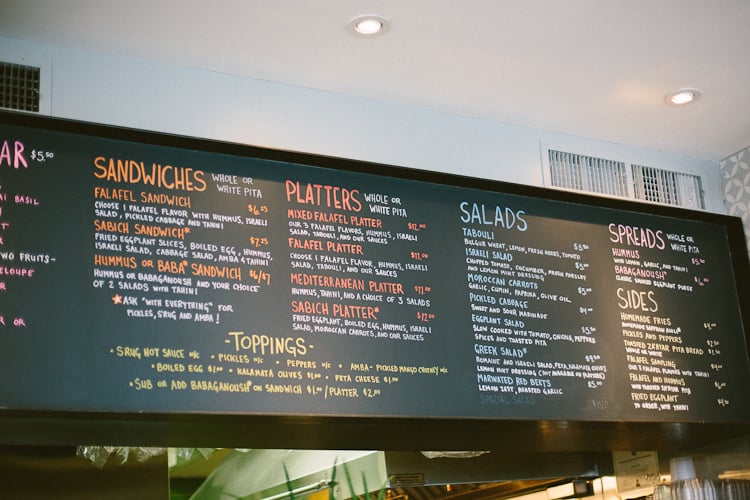 AR $5.50
AI BASIL
TWO FRUITS-
ELOUPE
AR OR
SANDWICHES WHOLE OR
WHITE PITA
FALAFEL SANDWICH $6.25
CHOOSE 1 FALAFEL FLAVOR WITH HUMMUS, ISRAELI
SALAD, PICKLED CABBAGE AND TAHINI
SABICH SANDWICH* $7.25
FRIED EGGPLANT SLICES, BOILED EGG, HUMMUS,
ISRAELI SALAD, CABBAGE SALAD, AMBA & TAHINI
HUMMUS OR BABA* SANDWICH $6/$7
HUMMUS OR BABAGANOUSH AND YOUR CHOICE
OF 2 SALADS WITH TAHINI
*ASK "WITH EVERYTHING" FOR
PICKLES, S'RUG AND AMBA!
PLATTERS WHOLE OR
WHITE PITA
MIXED FALAFEL PLATTER $12.00
OUR 3 FALAFEL FLAVORS, HUMMUS, ISRAELI
SALAD, TABOULI, AND OUR SAUCES
FALAFEL PLATTER $11.00
CHOOSE 1 FALAFEL FLAVOR, HUMMUS, ISRAELI
SALAD, TABOULI, AND OUR SAUCES
MEDITERRANEAN PLATTER $11.00
HUMMUS, TAHINI, AND A CHOICE OF 3 SALADS
SABICH PLATTER* $12.00
FRIED EGGPLANT, BOILED EGG, HUMMUS, ISRAELI
SALAD, MOROCCAN CARROTS, AND OUR SAUCES
-TOPPINGS-
• S'RUG HOT SAUCE N/C • PICKLES N/C • PEPPERS N/C • AMBA- PICKLED MANGO CHUTNEY N/C
• BOILED EGG $1.00 • KALAMATA OLIVES $1.00 • FETA CHEESE $1.00
• SUB OR ADD BABAGANOUSH* ON SANDWICH $1.00 / PLATTER $2.00
SALADS
TABOULI $5.50
BULGUR WHEAT, LEMON, FRESH HERBS, TOMATO
ISRAELI SALAD
CHOPPED TOMATO, CUCUMBER, FRESH PARSLEY
AND LEMON MINT DRESSING
MOROCCAN CARROTS
GARLIC, CUMIN, PAPRIKA, OLIVE OIL
PICKLED CABBAGE
SWEET AND SOUR MARINADE
EGGPLANT SALAD
SLOW COOKED WITH TOMATO, ONIONS, PEPPERS
SPICES AND TOASTED PITA
GREEK SALAD*
ROMAINE AND ISRAELI SALAD, FETA, KALAMATA OLIVES
LEMON MINT DRESSING (NOT AVAILABLE ON PLATTERS)
MARINATED RED BEETS
LEMON ZEST, ROASTED GARLIC
SPECIAL SALAD
SPREADS WHOLE OR
WHITE PITA
HUMMUS
W/ LEMON, GARLIC, AND TAHINI
BABAGANOUSH*
CLASSIC SMOKED EGGPLANT PUREE
SIDES
HOMEMADE FRIES
PICKLES AND PEPPERS
TOASTED ZA'ATAR PITA BREAD
WHOLE OR WHITE
FALAFEL SAMPLING
OUR 3 FALAFEL FLAVORS, WITH TAHINI
FALAFEL AND HUMMUS
FRIED EGGPLANT
TO ORDER, WITH TAHINI